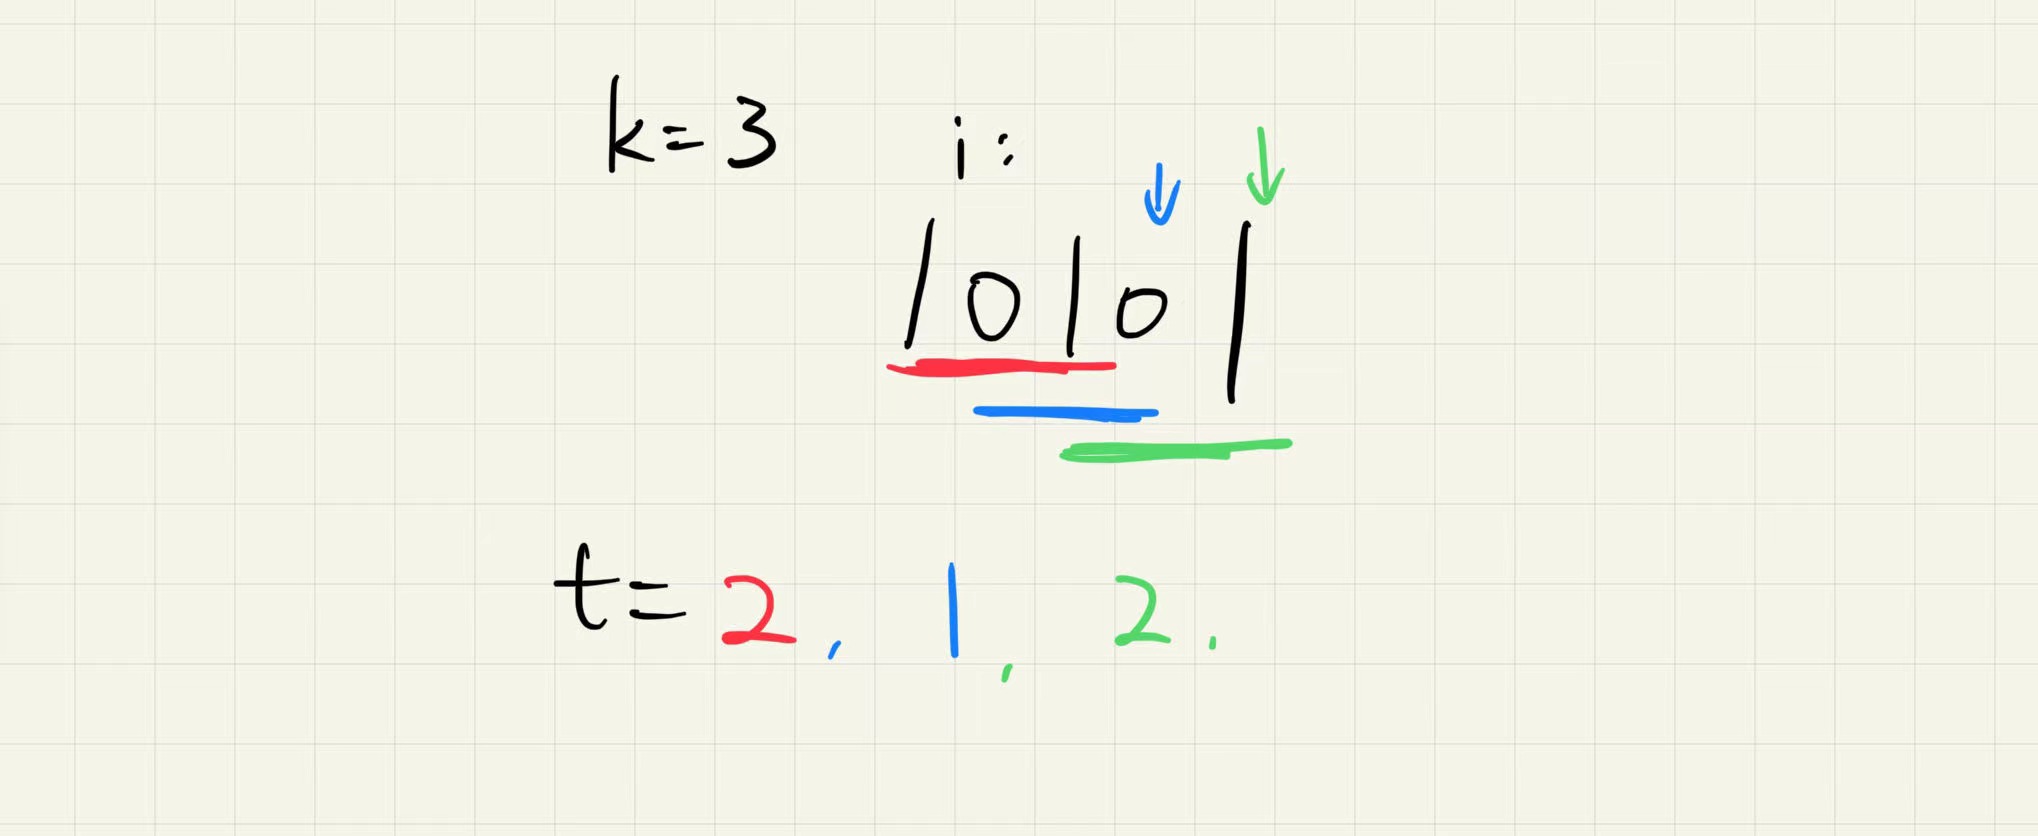 k=3 i:
10101
t=2, 1, 2.